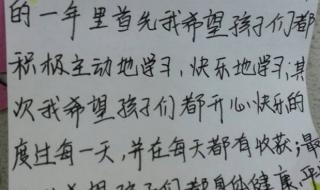 的一年里首先我希望孩子们都
积极主动地学习，快乐地学习；其
次我希望孩子们都开心快乐的
度过每一天，并在每天都有收获；最
希望孩子们都身体健康，平